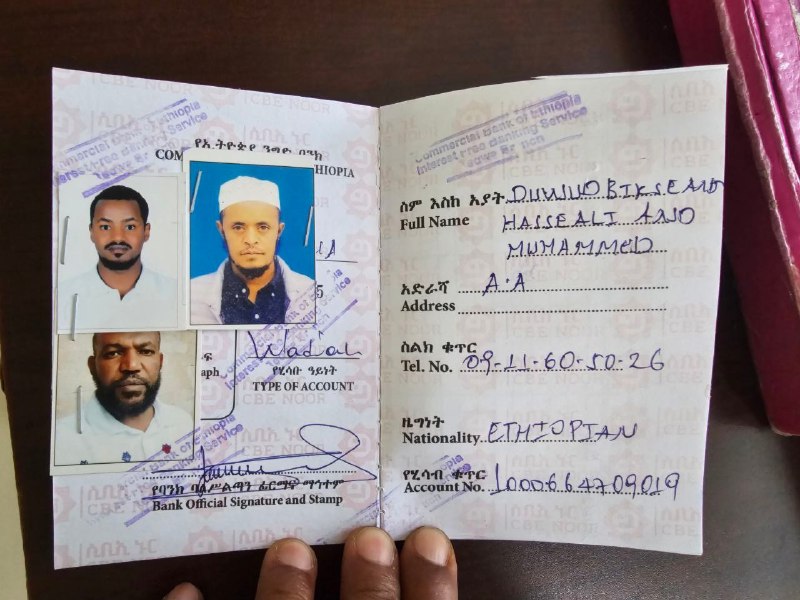 Commercial Bank of Ethiopia
Interest Free Banking Service
የኢትዮጵያ ንግድ ባንክ
COM
THIOPIA
Wadiah
aph
የሂሳቡ ዓይነት
TYPE OF ACCOUNT
የባንኩ ባለሥልጣን ፊርማና ማኅተም
Bank Official Signature and Stamp
ሰበአ ኑር
CBE NOOR
Commercial Bank of Ethiopia
Interest Free Banking Service
ስም እስከ አያት
Full Name HASSEALI AND
MUHAMMED
አድራሻ A.A
Address
ስልክ ቁጥር
Tel. No. 09-11-60-50-26
ዜግነት
Nationality ETHIOPIAN
የሂሳብ ቁጥር
Account No. 1000664709019